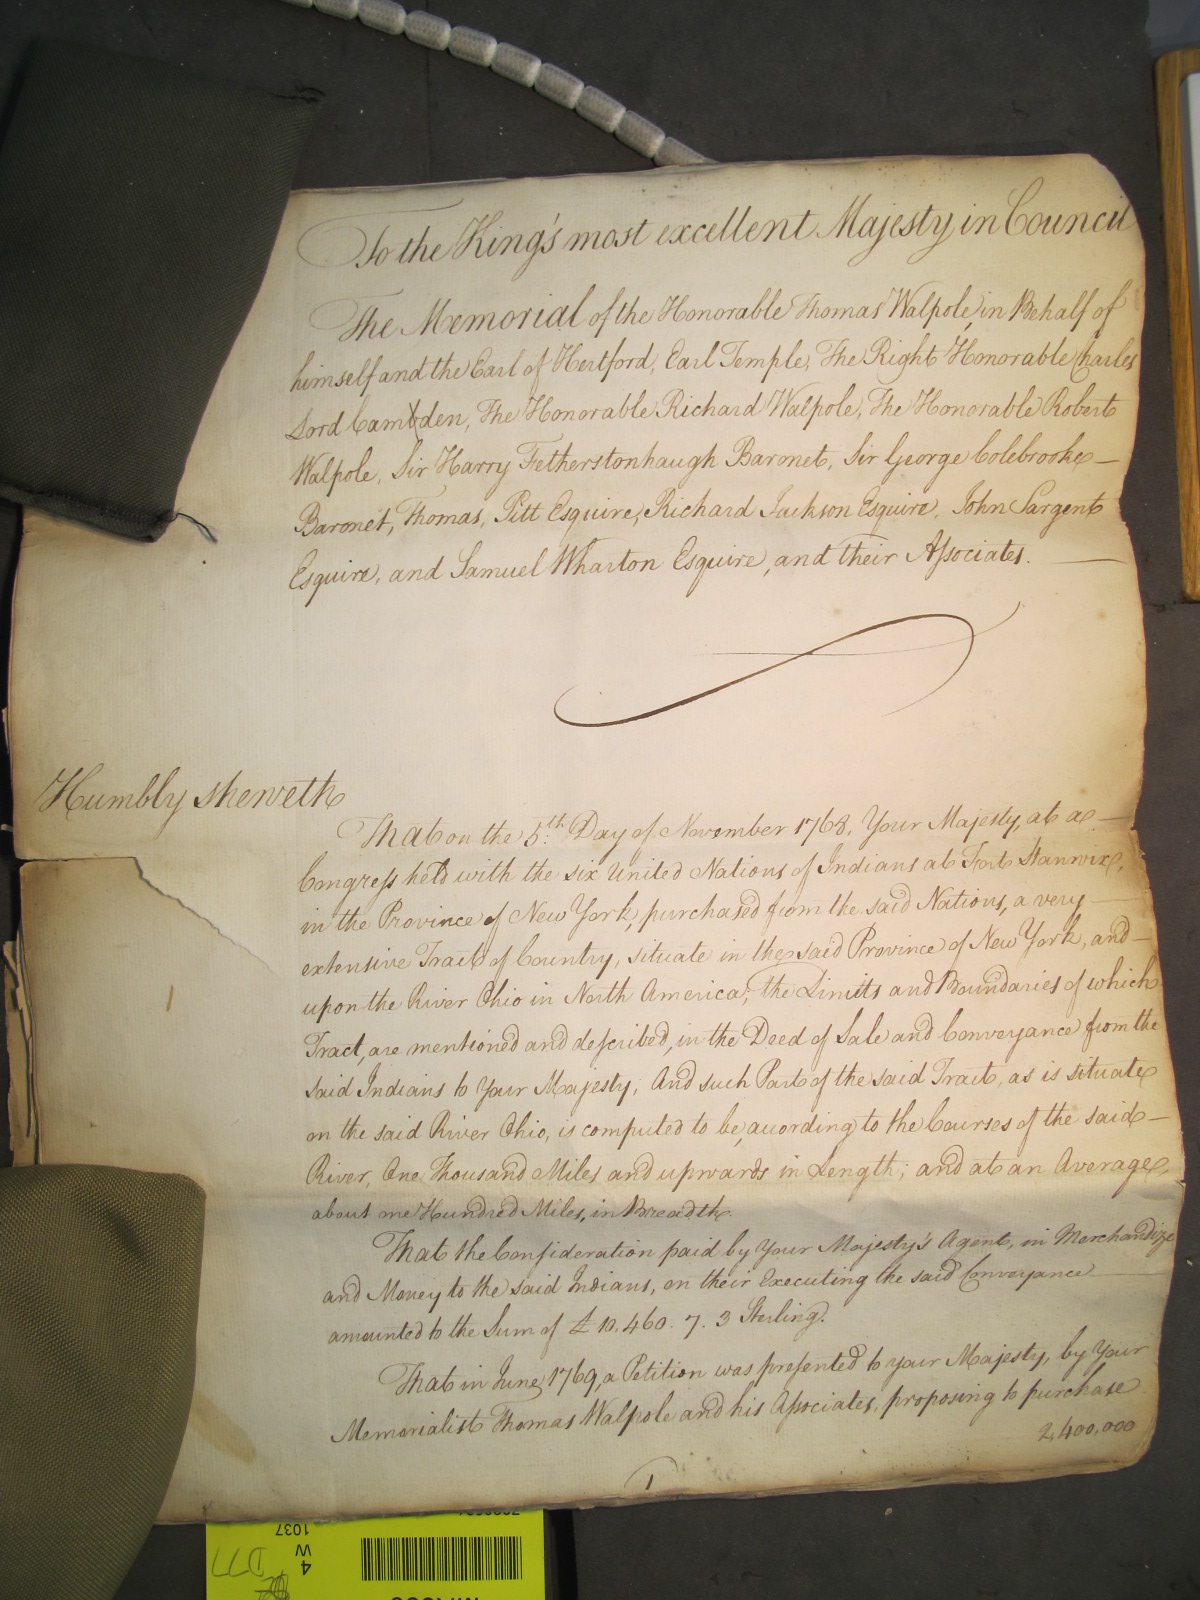 To the King's most excellent Majesty in Council
The Memorial of the Honorable Thomas Walpole, in Behalf of
himself and the Earl of Hertford, Earl Temple, The Right Honorable Charles
Lord Cambden, The Honorable Richard Walpole, The Honorable Robert
Walpole, Sir Harry Fetherstonhaugh Baronet, Sir George Colebrooke —
Baronet, Thomas, Pitt Esquire, Richard Jackson Esquire, John Sargent
Esquire, and Samuel Wharton Esquire, and their Associates. —
Humbly sheweth
That on the 5th. Day of November 1768, Your Majesty, at a —
Congress held with the six United Nations of Indians at Fort Stanwix,
in the Province of New York, purchased from the said Nations, a very —
extensive Tract of Country, situate in the said Province of New York, and —
upon the River Ohio in North America; the Limits and Boundaries of which
Tract, are mentioned and described, in the Deed of Sale and Conveyance from the
said Indians to Your Majesty; And such Part of the said Tract, as is situate
on the said River Ohio, is computed to be, according to the Courses of the said —
River, One Thousand Miles and upwards in Length; and at an Average,
about one Hundred Miles, in Breadth.
That the Consideration paid by Your Majesty's Agent, in Merchandize
and Money to the said Indians, on their Executing the said Conveyance —
amounted to the Sum of £ 10.460. 7. 3 Sterling.
That in June 1769, a Petition was presented to your Majesty, by Your
Memorialist Thomas Walpole and his Associates, proposing to purchase
2,400,000
1
4
W
1037
D77